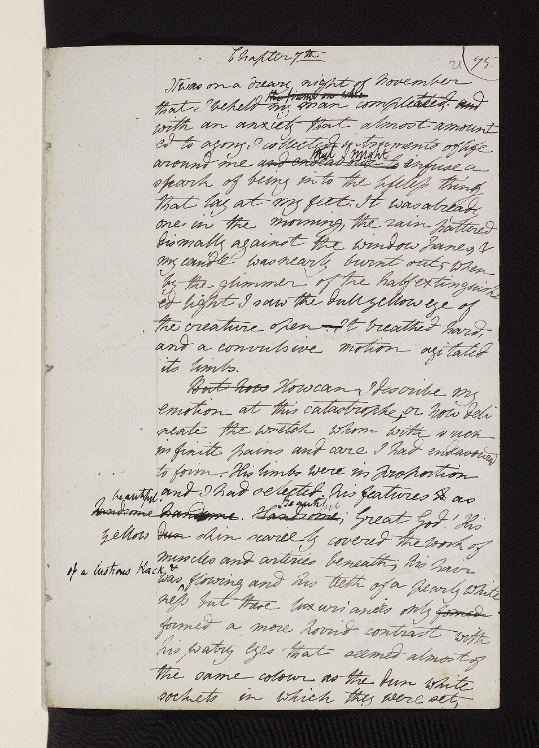 Chapter 7th
21 95
It was on a dreary night of November
the frame on whic
that I beheld my man compleated and
with an anxiety that almost amount
ed to agony, I collected instruments of life
that I might
around me and endeavour to infuse a
spark of being into the lifeless thing
that lay at my feet. It was already
one in the morning, the rain pattered
dismally against the window panes, &
my candle was nearly burnt out, when
by the glimmer of the half extinguish
ed light I saw the dull yellow eye of
the creature open. It breathed hard,
and a convulsive motion agitated
its limbs.
But how How can I describe my
emotion at this catastrophe, or how deli
neate the wretch whom with such
infinite pains and care I had endeavoured
to form. His limbs were in proportion
and I had selected his features & as
beautiful.
Beautiful
handsome handsome. Handsome; Great God! His
yellow dun skin scarcely covered the work of
muscles and arteries beneath; his hair
of a lustrous black, &
was flowing and his teeth of a pearly white
ness but these luxuriancies only formed
formed a more horrid contrast with
his watry eyes that seemed almost of
the same colour as the dun white
sockets in which they were set,